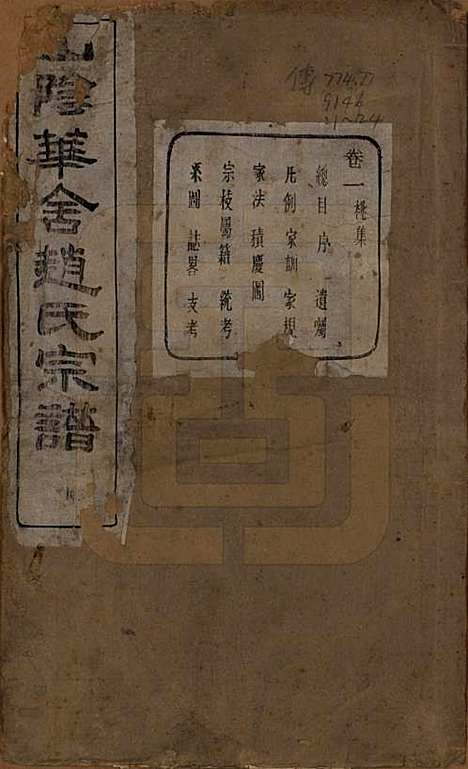 山陰華舍趙氏宗譜
傳 774.7
卷一 桃集
總目 序 遺囑
凡例 家訓 家規
家法 積慶圖
宗枝屬籍 統考
采圖 誌畧 支考